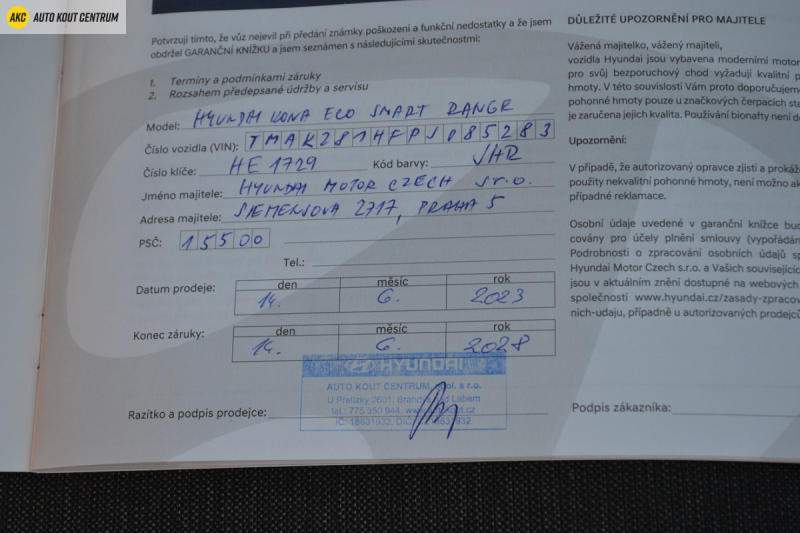 AKC AUTO KOUT CENTRUM
Potvrzuji tímto, že vůz nejevil při předání známky poškození a funkční nedostatky a že jsem
obdržel GARANČNÍ KNÍŽKU a jsem seznámen s následujícími skutečnostmi:
1. Termíny a podmínkami záruky
2. Rozsahem předepsané údržby a servisu
Model: HYUNDAI KONA ECO SMART RANGE
Číslo vozidla (VIN): TMAK281HFPJ085283
Číslo klíče: HE 1729 Kód barvy: JHR
Jméno majitele: HYUNDAI MOTOR CZECH s.r.o.
Adresa majitele: SIEMENSOVA 2717, PRAHA 5
PSČ: 15500
Tel.:
Datum prodeje: den měsíc rok
14. 6. 2023
Konec záruky: den měsíc rok
14. 6. 2028
HYUNDAI
AUTO KOUT CENTRUM, spol. s r.o.
U Pražky 2601, Brandýs nad Labem
tel.: 775 350 944,
IČ: 18631932, DIČ:
Razítko a podpis prodejce:
DŮLEŽITÉ UPOZORNĚNÍ PRO MAJITELE
Vážená majitelko, vážený majiteli,
vozidla Hyundai jsou vybavena moderními motor
pro svůj bezporuchový chod vyžadují kvalitní p
hmoty. V této souvislosti Vám proto doporučujem
pohonné hmoty pouze u značkových čerpacích sta
je zaručena jejich kvalita. Používání bionafty není d
Upozornění:
V případě, že autorizovaný opravce zjistí a prokáž
použity nekvalitní pohonné hmoty, není možno ak
případné reklamace.
Osobní údaje uvedené v garanční knížce bud
covány pro účely plnění smlouvy (vypořádán
Podrobnosti o zpracování osobních údajů sp
Hyundai Motor Czech s.r.o. a Vašich souvisejícíc
jsou v aktuálním znění dostupné na webových
společnosti www.hyundai.cz/zasady-zpracov
nich-udaju, případně u autorizovaných prodejců
Podpis zákazníka: